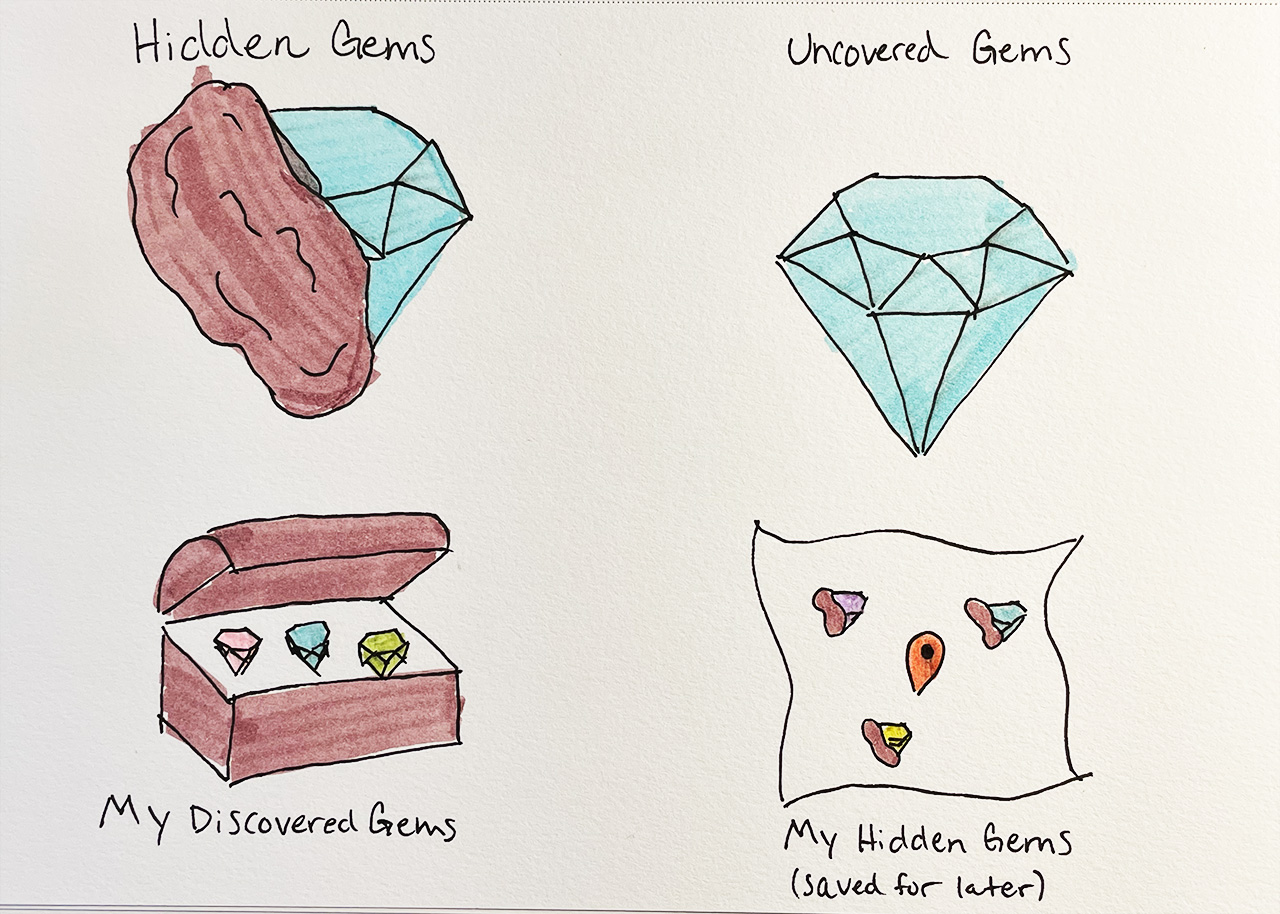 Hidden Gems
Uncovered Gems
My Discovered Gems
My Hidden Gems
(saved for later)